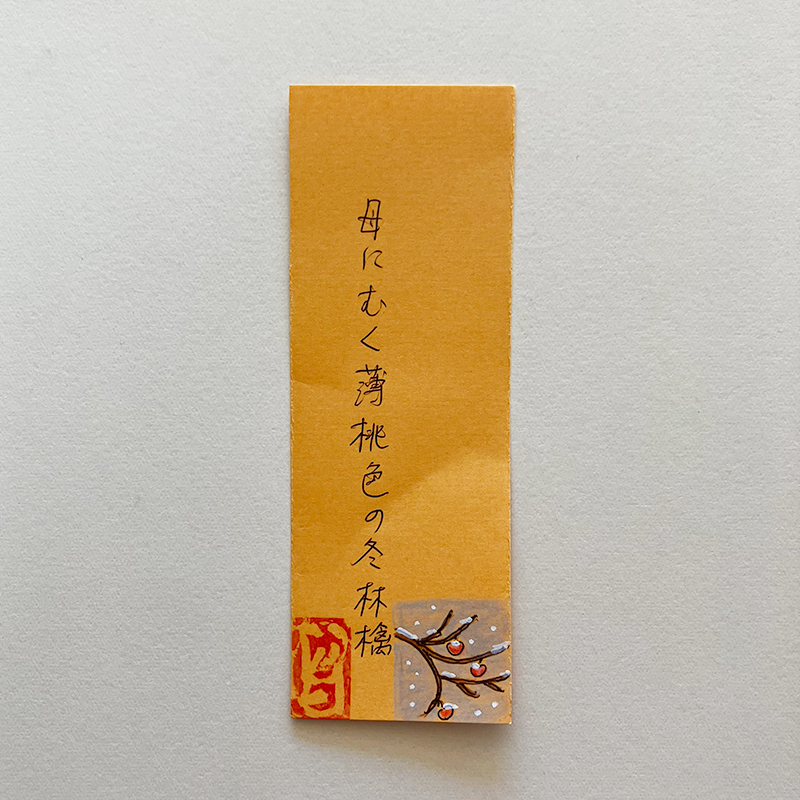 母にむく薄桃色の冬林檎